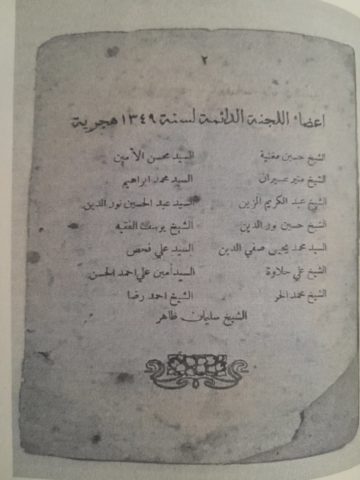 ٢
اعضاء اللجنة الدائمة لسنة ١٣٤٩ هجرية
الشيخ حسين مغنية السيد محسن الأمين
الشيخ منير عسيران السيد محمد ابراهيم
الشيخ عبد الكريم الزين السيد عبد الحسين نور الدين
الشيخ حسين نور الدين الشيخ يوسف الفقيه
السيد محمد يحيى صفي الدين السيد علي فحص
الشيخ علي حلاوة السيد امين علي احمد الحسن
الشيخ محمد الحر الشيخ احمد رضا
الشيخ سليمان ظاهر